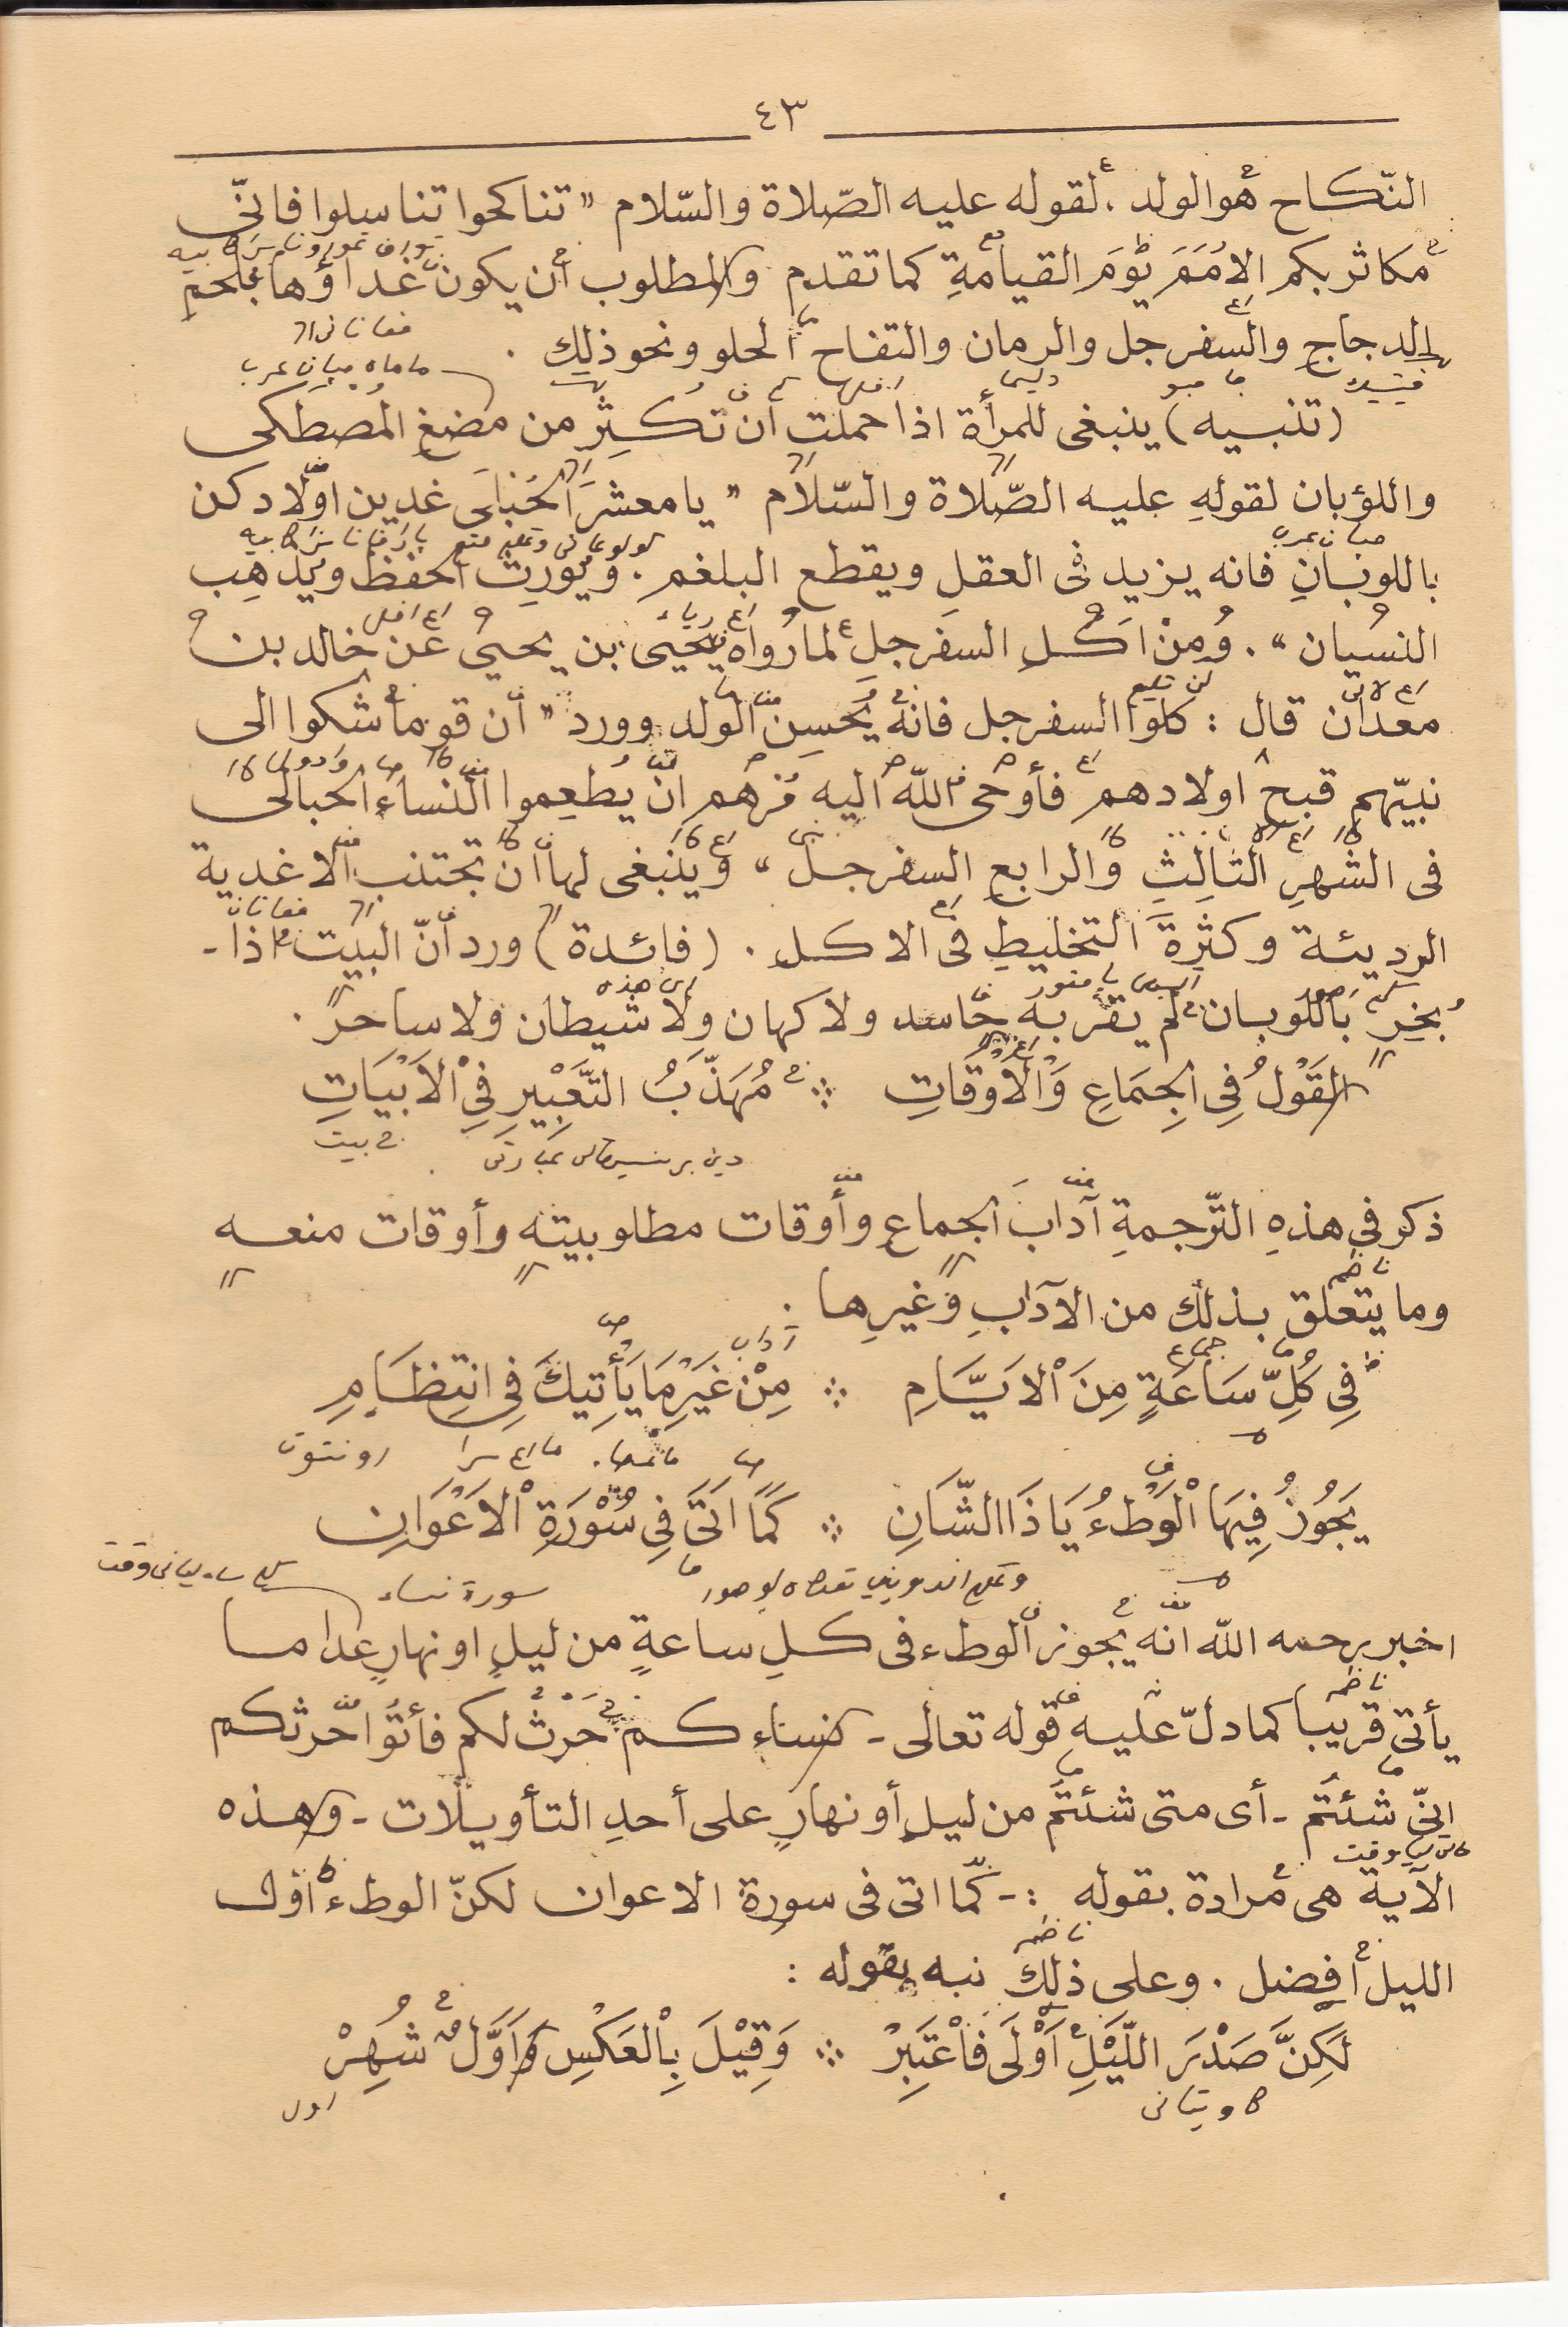 ٤٣
النّكاح هو الولد ، لقوله عليه الصّلاة والسّلام " تناكحوا تناسلوا فانّى
مكاثر بكم الامَمَ يوْمَ القيامةِ كما تقدم والمطلوب أن يكون غداؤها بلحمِ
الدجاجِ والسفرجل والرمان والتفاح الحلو ونحو ذلك .
(تنبيه) ينبغى للمرأة اذا حملت أن تُكثِر من مضغِ المُصطكى
واللؤبان لقولهِ عليه الصّلاة والسّلام " يا معشرَ الحُبالَى غدين اوّلادكن
باللوبَانِ فانه يزيد فى العقلِ ويقطع البلغم . ويُورِث الحفظ ويُذهِب
النسْيان " . وُمِنْ اَكْلِ السفرجلِ لما رُواه يَحْيَى بن يحيىْ عَن خالد بن
معدْان قال : كلوا السفرجل فانهُ يُحسِن الولد وورد " أن قوما شكوا الى
نبيّهم قبح اولادهم فأوحى اللّه اليه مُرْهُم انْ يُطعِموا النّساءَ الحبالى
فى الشّهرِ الثالِثِ والرابعِ السفرجل " وَينْبغى لها أن تجتنب الاغدية
الرديئة وكثرةَ التخليطِ فى الاكلِ . (فائدة) ورد أنّ البيت اذا -
بُخِر باللوبان لم يقربه حاسد ولا كهان ولا شيطان ولا ساحر .
القَوْلُ فِى الجِمَاعِ وَالْاَوْقَاتِ ∴ مُهَذَّبُ التَّعْبِيْرِ فِى الْاَبْيَاتِ
دين بريسيهاكن عبارتى
بيت
ذكر فى هذهِ التّرجمةِ آدابَ الجماعِ وأوقات مطلوبيته وأوقات منعه
ناظم
وما يتعلق بذلك من الآدابِ وغيرِها .
آداب
جماع
فِى كُلِّ سَاعَةٍ مِنَ الْاَيَّامِ ∴ مِنْ غَيْرِ مَا يَأْتِيكَ فِى انْتِظَامِ
يَجُوزُ فِيهَا الْوَطْءُ يَا ذَا الشَّانِ ∴ كَمَا اَتَى فِى سُوْرَةِ الْاَعْوَانِ
سورة نساء
اخبر رحمه اللّه انه يجوز الوطء فى كلِ ساعةٍ من ليلٍ او نهارٍ عدا ما
ناظم
يأتى قريبا كما دلّ عليه قوله تعالى - نساءكم حَرْثٌ لكم فأتوُا حرثكم
انّى شئتُم - أى متى شئتُم من ليلٍ أو نهارٍ على أحدِ التأويلات - وهذه
الآية هى مُرادة بقوله :- كما اتى فى سورة الاعوان لكنّ الوطءَ اوّل
ناظم
الليل أفضل . وعلى ذلك نبه بقوله :
لَكِنَّ صَدْرَ اللَّيْلِ اَوْلَى فَاعْتَبِرْ ∴ وَقِيْلَ بِالْعَكْسِ وَاَوَّلٌ شُهِرْ
اول